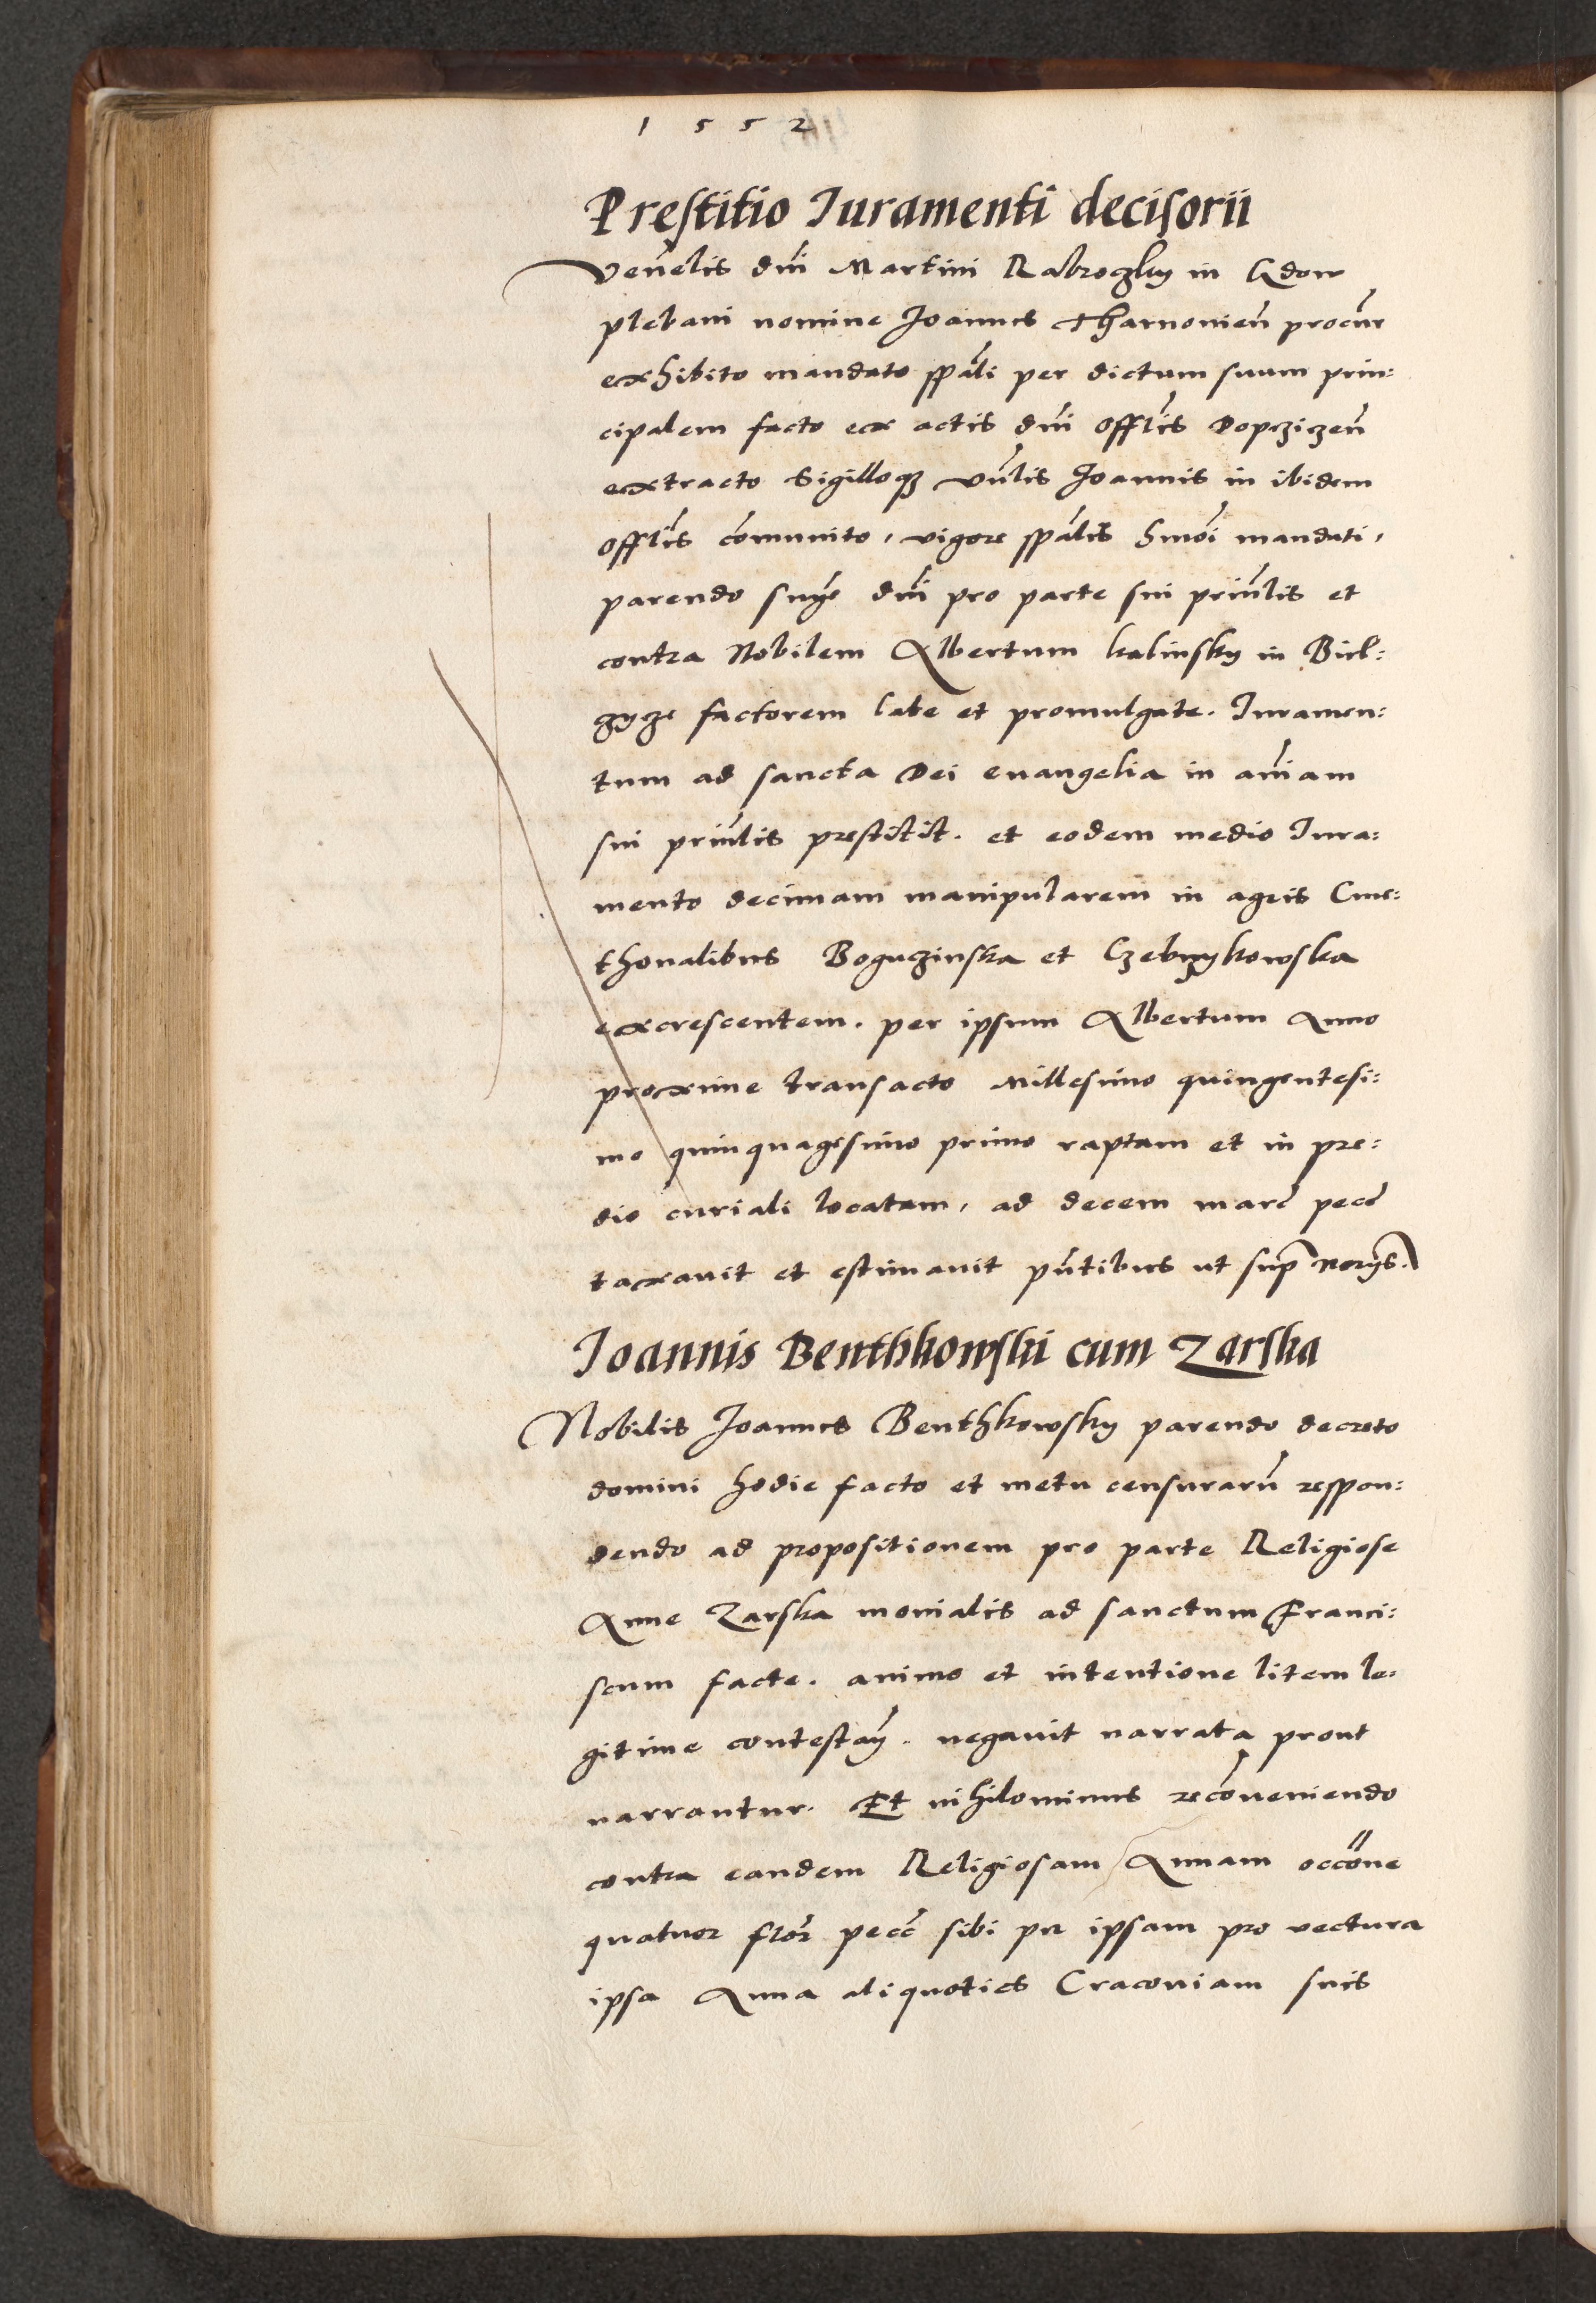 1552
Prestitio Iuramenti decisorii
Venelis dni Martini Rabroczky in Gdow
plebani nomine Joannes Tharnonien procur
exhibito mandato spali per dictum suum prin:
cipalem facto ex actis dni offlis Dopczicen
extracto Sigilloq vnlis Joannis in ibidem
offlis comunito, vigore spalis hmoi mandati,
parendo snye dni pro parte sui prinlis et
contra Nobilem Albertum kalinsky in Birl:
factorem late et promulgate. Iuramen:
tum ad sancta Dei euangelia in aniam
sui prinlis prestitit. et eodem medio Iura:
mento decimam manipularem in agris Cme:
thonalibus Boguczinska et
excrescentem. per ipsum Albertum Anno
proxime transacto Millesimo quingentesi:
mo quinquagesimo primo raptam et in pre:
dio curiali locatam, ad decem marc pecc
taxauit et estimauit pntibus ut sup
Joannis Benthkowskii cum Zarska
Nobilis Joannes Benthkowsky parendo decreto
domini hodie facto et metu censuraru respon:
dendo ad propositionem pro parte Religiose
Anne Zarska monialis ad sanctum Franci:
scum facte. animo et intentione litem le:
gitime contestan. negauit narrata prout
narrantur. Et nihilominus reconueniendo
contra eandem Religiosam Annam occone
quatuor flor pecc sibi per ipsam pro vectura
ipsa Anna aliquoties Cracouiam suis